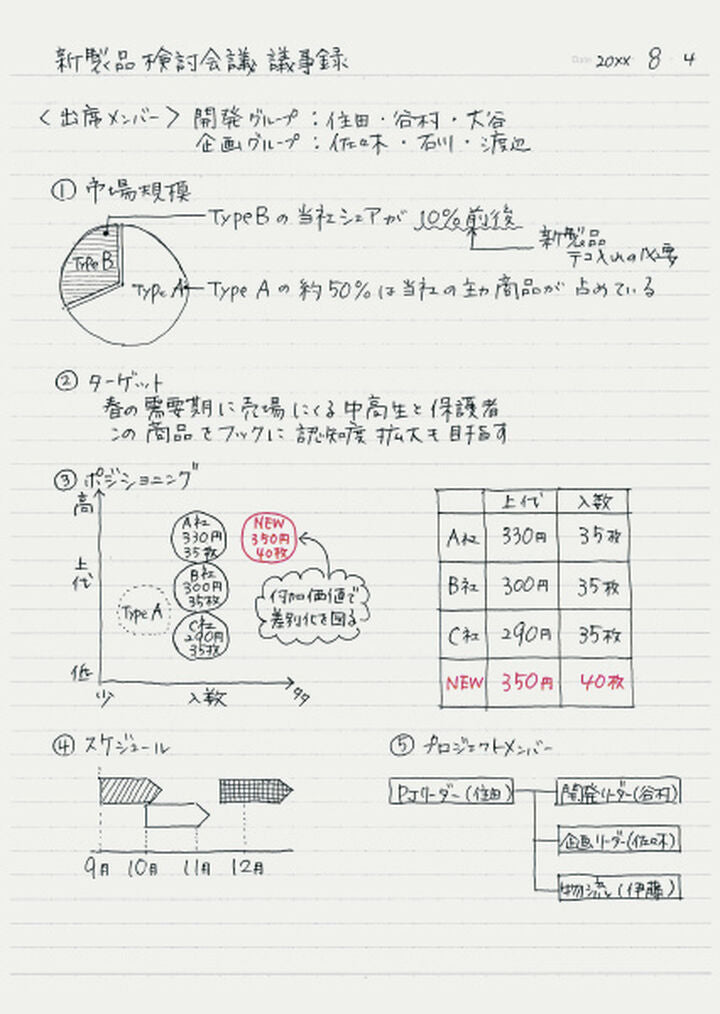 新製品検討会議 議事録
Date 20XX 8・4
〈出席メンバー〉 開発グループ：住田・谷村・大谷
企画グループ：佐々木・石川・渡辺
① 市場規模
TypeBの当社シェアが10%前後
新製品
テコ入れの必要
Type B
Type A
Type Aの約50%は当社の主力商品が占めている
② ターゲット
春の需要期に売場にくる中高生と保護者
この商品をフックに認知度拡大も目指す
③ ポジショニング
高
上代
低
少
入数
多
A社
330円
35枚
NEW
350円
40枚
B社
300円
35枚
Type A
C社
290円
35枚
付加価値で
差別化を図る
上代 入数
A社 330円 35枚
B社 300円 35枚
C社 290円 35枚
NEW 350円 40枚
④ スケジュール
9月 10月 11月 12月
⑤ プロジェクトメンバー
PJリーダー(住田)
開発リーダー(谷村)
企画リーダー(佐々木)
物流(伊藤)